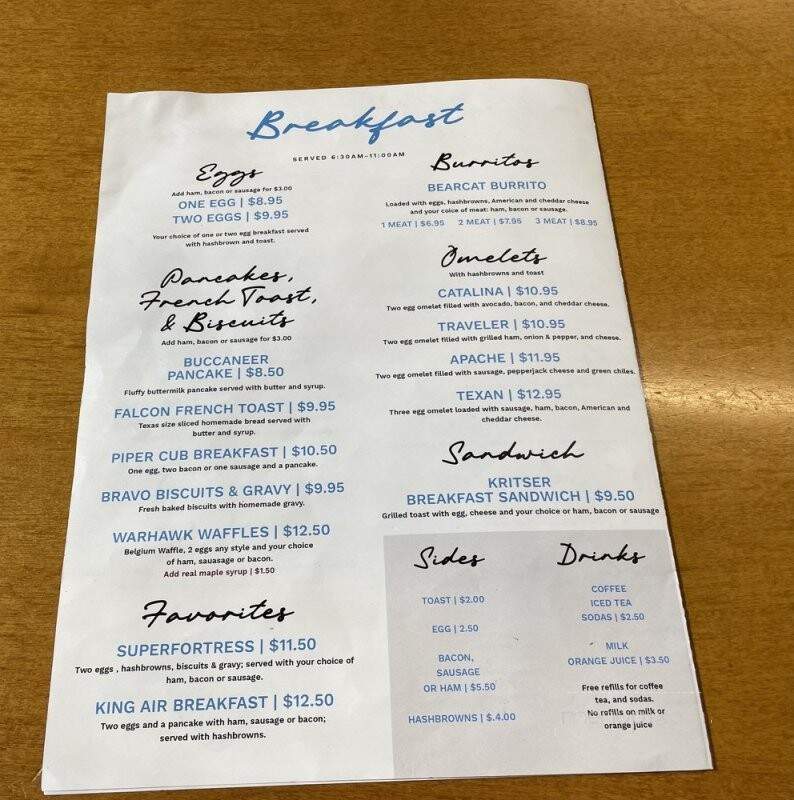 Breakfast
SERVED 6:30AM-11:00AM
Eggs
Add ham, bacon or sausage for $3.00
ONE EGG | $8.95
TWO EGGS | $9.95
Your choice of one or two egg breakfast served
with hashbrown and toast.
Pancakes,
French Toast,
& Biscuits
Add ham, bacon or sausage for $3.00
BUCCANEER
PANCAKE | $8.50
Fluffy buttermilk pancake served with butter and syrup.
FALCON FRENCH TOAST | $9.95
Texas size sliced homemade bread served with
butter and syrup.
PIPER CUB BREAKFAST | $10.50
One egg, two bacon or one sausage and a pancake.
BRAVO BISCUITS & GRAVY | $9.95
Fresh baked biscuits with homemade gravy.
WARHAWK WAFFLES | $12.50
Belgium Waffle, 2 eggs any style and your choice
of ham, sauasage or bacon.
Add real maple syrup | $1.50
Favorites
SUPERFORTRESS | $11.50
Two eggs , hashbrowns, biscuits & gravy; served with your choice of
ham, bacon or sausage.
KING AIR BREAKFAST | $12.50
Two eggs and a pancake with ham, sausage or bacon;
served with hashbrowns.
Burritos
BEARCAT BURRITO
Loaded with eggs, hashbrowns, American and cheddar cheese
and your coice of meat: ham, bacon or sausage.
1 MEAT | $6.95 2 MEAT | $7.95 3 MEAT | $8.95
Omelets
With hashbrowns and toast
CATALINA | $10.95
Two egg omelet filled with avocado, bacon, and cheddar cheese.
TRAVELER | $10.95
Two egg omelet filled with grilled ham, onion & pepper, and cheese.
APACHE | $11.95
Two egg omelet filled with sausage, pepperjack cheese and green chiles.
TEXAN | $12.95
Three egg omelet loaded with sausage, ham, bacon, American and
cheddar cheese.
Sandwich
KRITSER
BREAKFAST SANDWICH | $9.50
Grilled toast with egg, cheese and your choice or ham, bacon or sausage
Sides
TOAST | $2.00
EGG | 2.50
BACON,
SAUSAGE
OR HAM | $5.50
HASHBROWNS | $.4.00
Drinks
COFFEE
ICED TEA
SODAS | $2.50
MILK
ORANGE JUICE | $3.50
Free refills for coffee
tea, and sodas.
No refills on milk or
orange juice